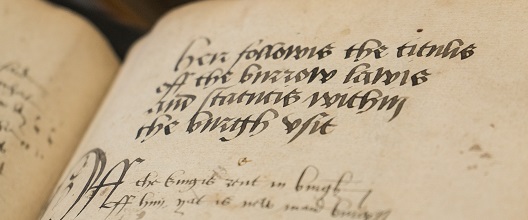 Heir followis the titulis
off the burrow lawis
and statutis within
the burgh usit
Off the kingis rent in burgh
Off him yat is new maid burges